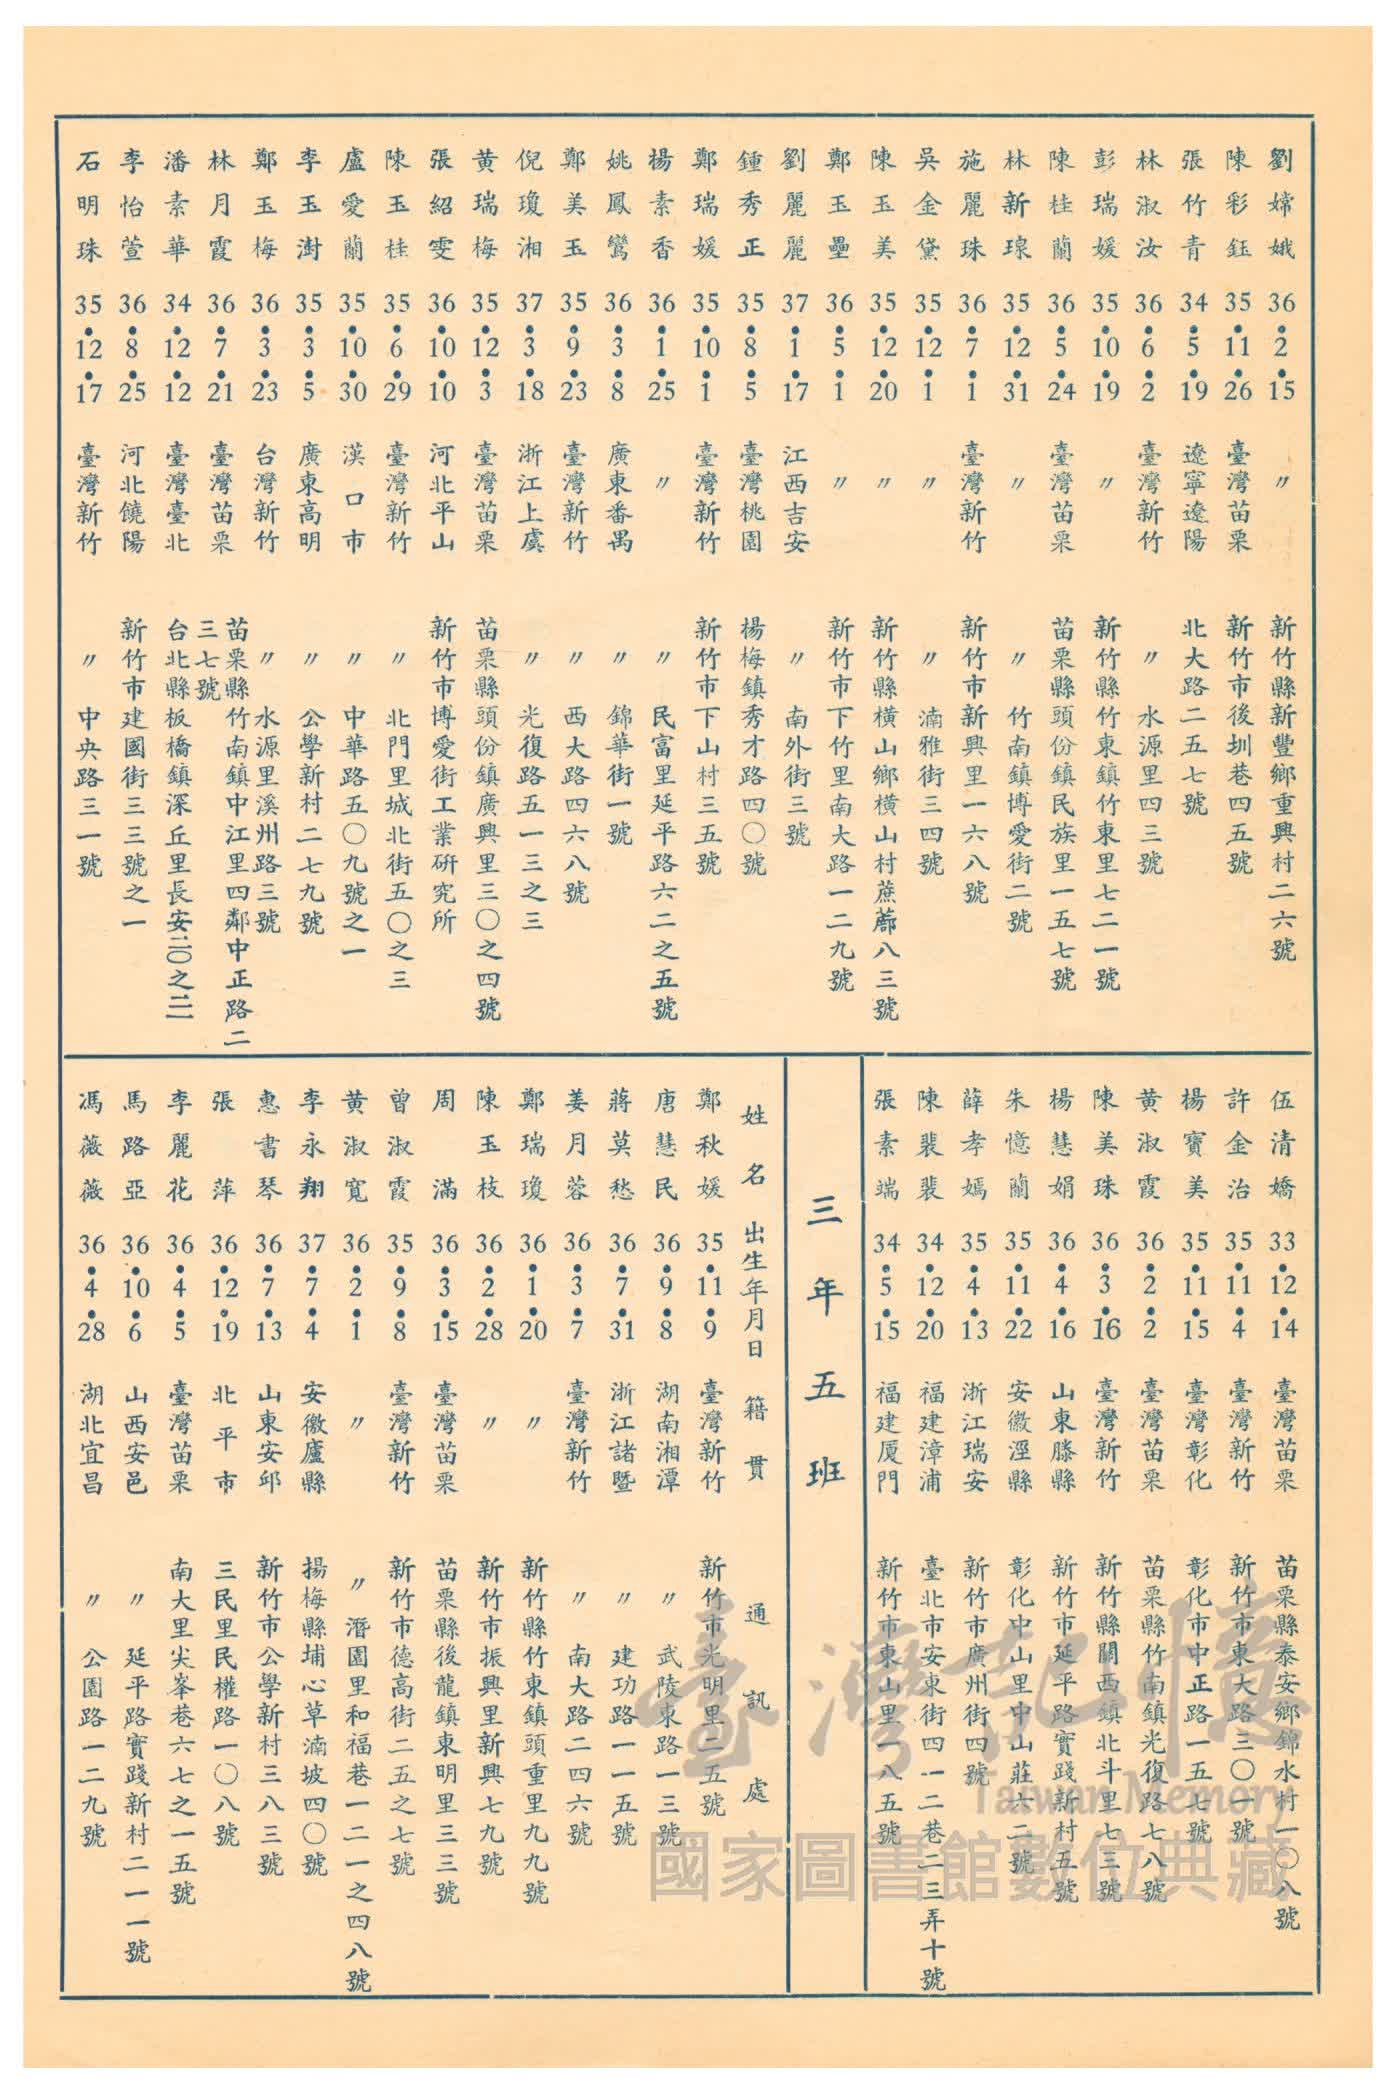 劉嫦娥 36•2•15 〃 新竹縣新豐鄉重興村二六號
陳彩鈺 35•11•26 臺灣苗栗 新竹市後圳巷四五號
張竹青 34•5•19 遼寧遼陽 北大路二五七號
林淑汝 36•6•2 臺灣新竹 〃 水源里四三號
彭瑞媛 35•10•19 〃 新竹縣竹東鎮竹東里七二一號
陳桂蘭 36•5•24 臺灣苗栗 苗栗縣頭份鎮民族里一五七號
林新琅 35•12•31 〃 〃 竹南鎮博愛街二號
施麗珠 36•7•1 臺灣新竹 新竹市新興里一六八號
吳金黛 35•12•1 〃 〃 湳雅街三四號
陳玉美 35•12•20 〃 新竹縣橫山鄉橫山村蔗蔀八三號
鄭玉壘 36•5•1 〃 新竹市下竹里南大路一二九號
劉麗麗 37•1•17 江西吉安 〃 南外街三號
鍾秀正 35•8•5 臺灣桃園 楊梅鎮秀才路四〇號
鄭瑞媛 35•10•1 臺灣新竹 新竹市下山村三五號
楊素香 36•1•25 〃 〃 民富里延平路六二之五號
姚鳳鸞 36•3•8 廣東番禺 〃 錦華街一號
鄭美玉 35•9•23 臺灣新竹 〃 西大路四六八號
倪瓊湘 37•3•18 浙江上虞 〃 光復路五一三之三
黄瑞梅 35•12•3 臺灣苗栗 苗栗縣頭份鎮廣興里三〇之四號
張紹雯 36•10•10 河北平山 新竹市博愛街工業研究所
陳玉桂 35•6•29 臺灣新竹 〃 北門里城北街五〇之三
盧愛蘭 35•10•30 漢口市 〃 中華路五〇九號之一
李玉澍 35•3•5 廣東高明 〃 公學新村二七九號
鄭玉梅 36•3•23 台灣新竹 〃 水源里溪州路三號
林月霞 36•7•21 臺灣苗栗 苗栗縣竹南鎮中江里四鄰中正路二三七號
潘素華 34•12•12 臺灣臺北 台北縣板橋鎮深丘里長安二〇之二
李怡萱 36•8•25 河北饒陽 新竹市建國街三三號之一
石明珠 35•12•17 臺灣新竹 〃 中央路三一號
伍清嬌 33•12•14 臺灣苗栗 苗栗縣泰安鄉錦水村一〇八號
許金治 35•11•4 臺灣新竹 新竹市東大路三〇一號
楊寶美 35•11•15 臺灣彰化 彰化市中正路一五七號
黄淑霞 36•2•2 臺灣苗栗 苗栗縣竹南鎮光復路七八號
陳美珠 36•3•16 臺灣新竹 新竹縣關西鎮北斗里七三號
楊慧娟 36•4•16 山東滕縣 新竹市延平路實踐新村五號
朱憶蘭 35•11•22 安徽涇縣 彰化中山里中山莊六二號
薛孝嫣 35•4•13 浙江瑞安 新竹市廣州街四號
陳裴裴 34•12•20 福建漳浦 臺北市安東街四一二巷二三弄十號
張素端 34•5•15 福建厦門 新竹市東山里一八五號
三年五班
姓名 出生年月日 籍貫 通訊處
鄭秋媛 35•11•9 臺灣新竹 新竹市光明里二五號
唐慧民 36•9•8 湖南湘潭 〃 武陵東路一三號
蔣莫愁 36•7•31 浙江諸暨 〃 建功路一一五號
姜月蓉 36•3•7 臺灣新竹 〃 南大路二四六號
鄭瑞瓊 36•1•20 〃 新竹縣竹東鎮頭重里九九號
陳玉枝 36•2•28 〃 新竹市振興里新興七九號
周滿 36•3•15 臺灣苗栗 苗栗縣後龍鎮東明里三三號
曾淑霞 35•9•8 臺灣新竹 新竹市德高街二五之七號
黄淑寬 36•2•1 〃 〃 潛園里和福巷一二一之四八號
李永翔 37•7•4 安徽廬縣 揚梅縣埔心草湳坡四〇號
惠書琴 36•7•13 山東安邱 新竹市公學新村三八三號
張萍 36•12•19 北平市 三民里民權路一〇八號
李麗花 36•4•5 臺灣苗栗 南大里尖峯巷六七之一五號
馬路亞 36•10•6 山西安邑 〃 延平路實踐新村二一一號
馮薇薇 36•4•28 湖北宜昌 〃 公園路一二九號
臺灣記憶
Taiwan Memory
國家圖書館數位典藏